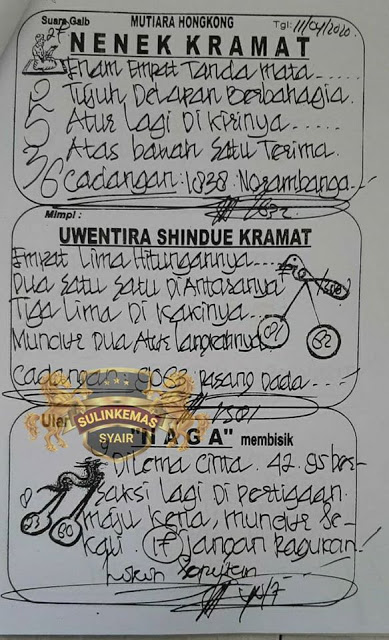 Suara Gaib
MUTIARA HONGKONG
Tgl: 11/04/2020.
NENEK KRAMAT
Enam Empat Tanda mata.....
Tujuh Delapan Berbahagia.
Atur Lagi Di Kirinya.....
Atas bawah Satu Terima.
Cadangan: 1838.
Mimpi :
UWENTIRA SHINDUE KRAMAT
Empat Lima Hitungannya....
Dua Satu Satu Di Antaranya
Tiga Lima Di Kakinya....
Mundur Dua Atur Langkahnya
Cadangan: pasang Dada....
Ular
SULINKEMAS
SYAIR
"NAGA" membisik
Dilema cinta. 42. 95 ber-
saksi Lagi Di pertigaan.
maju kena, mundur Se-
kali. 17 jangan Ragukan!